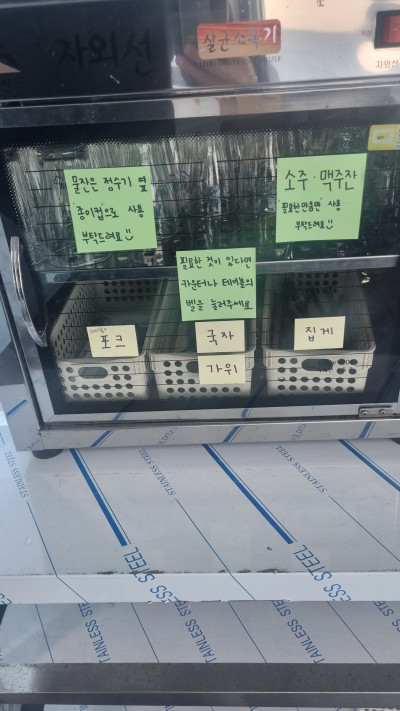 자외선
살균소독기
자외선
물잔은 정수기 옆
종이컵으로 사용
부탁드려요
소주·맥주잔
필요한만큼만 사용
부탁드려요
필요한 것이 있다면
카운터나 테이블의
벨을 눌러주세요
포크
국자
집게
가위
STAINLESS STEEL
STAINLESS STEEL
STAINLESS STEEL
STAINLESS STEEL
STAINLESS STEEL
STAINLESS STEEL
STAINLESS STEEL